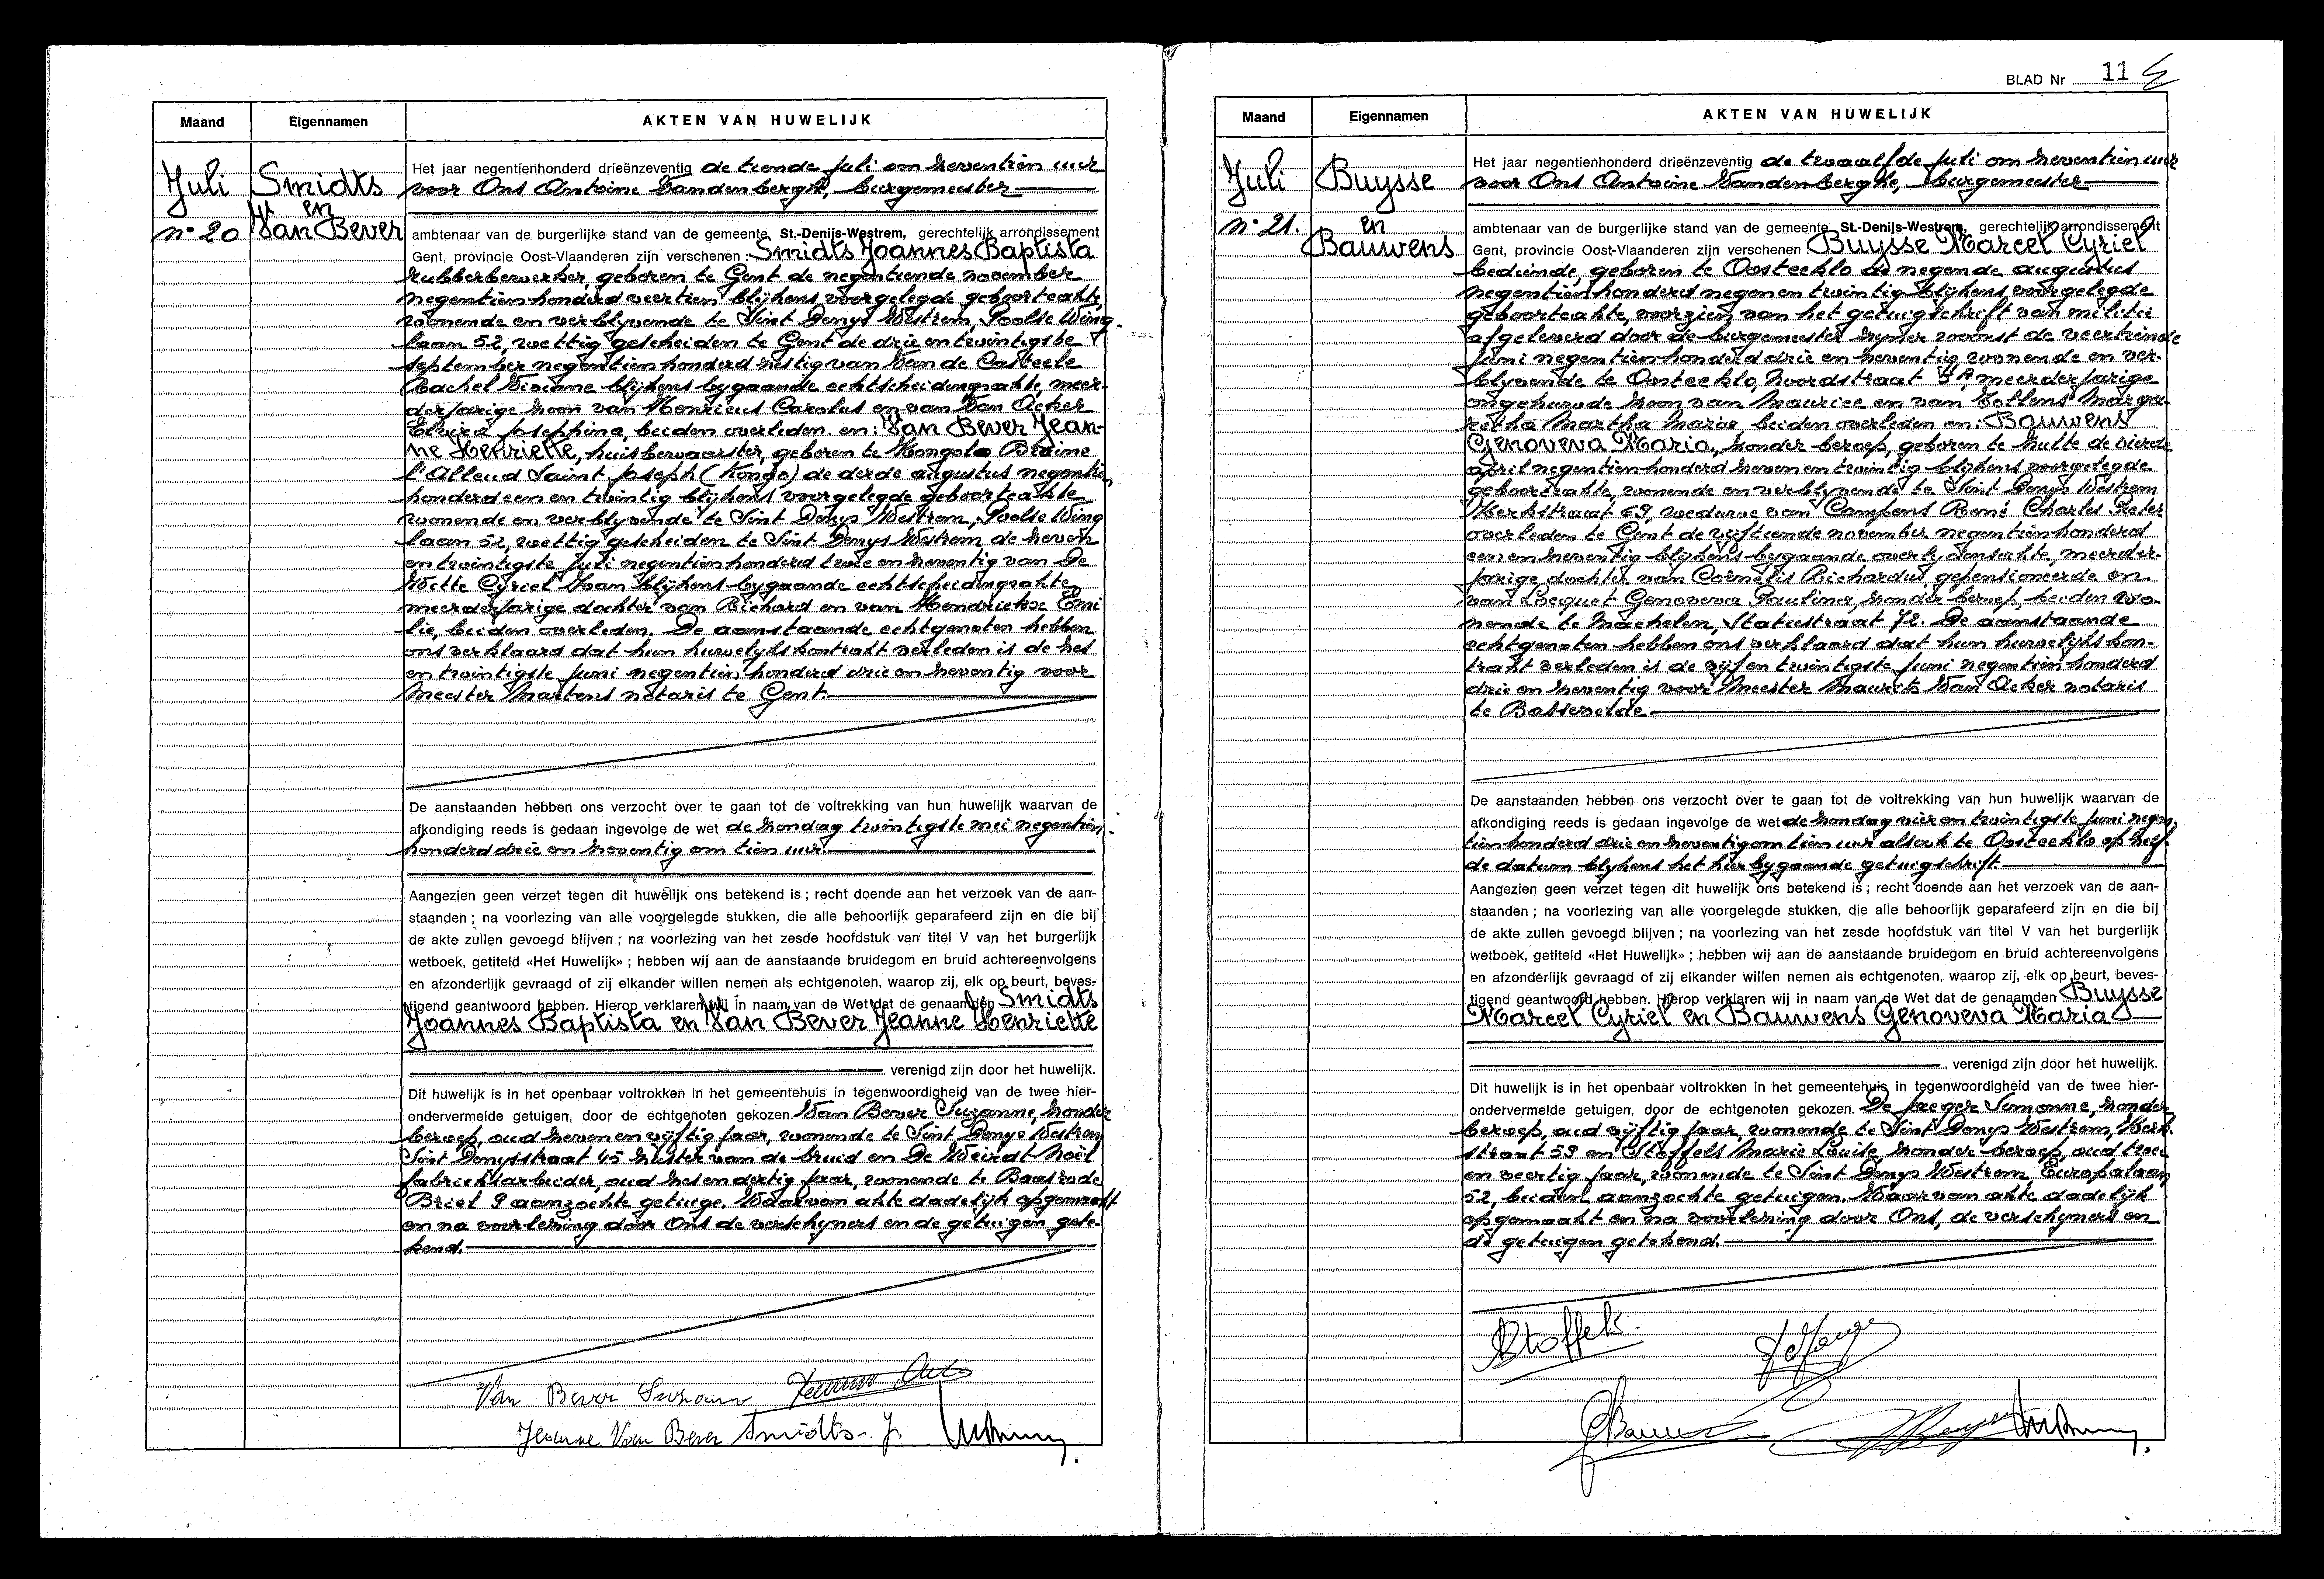 Maand
Eigennamen
AKTEN VAN HUWELIJK
Juli
Smidts
en
n° 20
Van Bever
Het jaar negentienhonderd drieënzeventig de tiende juli om zeventien uur
voor Ons Antoine Vandenberghe, burgemeester
ambtenaar van de burgerlijke stand van de gemeente St.-Denijs-Westrem, gerechtelijk arrondissement
Gent, provincie Oost-Vlaanderen zijn verschenen : Smidts Joannes Baptista
rubberbewerker, geboren te Gent de negentiende november
negentienhonderd veertien blijkens voorgelegde geboorteakte,
wonende en verblyvende te Sint Denys Westrem, Poolse Wing-
laan 52, wettig gescheiden te Gent de drie en twintigste
september negentienhonderd zestig van Van de Casteele
Rachel Viviane blijkens bygaande echtscheidingsakte, meer-
derjarige zoon van Henricus Carolus en van Van Acker
Elvira Josephina, beiden overleden. en: Van Bever Jean-
ne Henriette, huisbewaarster, geboren te Mongolo Braine
l'Alleud Saint Joseph (Kongo) de derde augustus negentien
honderd een en twintig blijkens voorgelegde geboorteakte
wonende en verblyvende te Sint Denys Westrem, Poolse Wing
laan 52, wettig gescheiden te Sint Denys Westrem de zeven
en twintigste juli negentienhonderd twee en zeventig van De
Witte Cyriel Ivan blijkens bygaande echtscheidingsakte
meerderjarige dochter van Richard en van Hendrickse Emi
lie, beiden overleden. De aanstaande echtgenoten hebben
ons verklaard dat hun huwelykskontrakt verleden is de zes
en twintigste juni negentien honderd drie en zeventig voor
Meester Martens notaris te Gent.
De aanstaanden hebben ons verzocht over te gaan tot de voltrekking van hun huwelijk waarvan de
afkondiging reeds is gedaan ingevolge de wet de zondag twintigste mei negentien-
honderd drie en zeventig om tien uur.
Aangezien geen verzet tegen dit huwelijk ons betekend is ; recht doende aan het verzoek van de aan-
staanden ; na voorlezing van alle voorgelegde stukken, die alle behoorlijk geparafeerd zijn en die bij
de akte zullen gevoegd blijven ; na voorlezing van het zesde hoofdstuk van titel V van het burgerlijk
wetboek, getiteld «Het Huwelijk» ; hebben wij aan de aanstaande bruidegom en bruid achtereenvolgens
en afzonderlijk gevraagd of zij elkander willen nemen als echtgenoten, waarop zij, elk op beurt, beves-
tigend geantwoord hebben. Hierop verklaren wij in naam van de Wet dat de genaamden Smidts
Joannes Baptista en Van Bever Jeanne Henriette
verenigd zijn door het huwelijk.
Dit huwelijk is in het openbaar voltrokken in het gemeentehuis in tegenwoordigheid van de twee hier-
ondervermelde getuigen, door de echtgenoten gekozen. Van Bever Suzanne, zonder
beroep, oud zeven en vyftig jaar, wonende te Sint Denys Westrem
Sint Denysstraat 45 zuster van de bruid en De Weirdt Noël
fabrieksarbeider, oud zes en dertig jaar, wonende te Baasrode
Briel 9 aanzochte getuige. Waarvan akte dadelijk opgemaakt
en na voorlezing door Ons de verschyners en de getuigen gete-
kend.
Van Bever Suzanne
Jeanne Van Bever Smidts J.
BLAD Nr 11
Maand
Eigennamen
AKTEN VAN HUWELIJK
Juli
Buysse
n° 21.
en
Bauwens
Het jaar negentienhonderd drieënzeventig de twaalfde juli om zeventien uur
voor Ons Antoine Vandenberghe, burgemeester
ambtenaar van de burgerlijke stand van de gemeente St.-Denijs-Westrem, gerechtelijk arrondissement
Gent, provincie Oost-Vlaanderen zijn verschenen : Buysse Marcel Cyriel
bediende, geboren te Oosteeklo de negende augustus
negentienhonderd negen en twintig blijkens voorgelegde
geboorteakte, voorzien van het getuigschrift van militie
afgeleverd door de burgemeester zyner woonst de veertiende
juni negentienhonderd drie en zeventig wonende en ver-
blyvende te Oosteeklo, Noordstraat 5A, meerderjarige
ongehuwde zoon van Maurice en van Tollens Marga-
retha Martha Maria, beiden overleden en: Bauwens
Genoveva Maria, zonder beroep, geboren te Zulte de vierde
april negentienhonderd zeven en twintig blijkens voorgelegde
geboorteakte, wonende en verblyvende te Sint Denys Westrem
Kerkstraat 69, weduwe van Campens René Charles Pieter
overleden te Gent de vijftiende november negentienhonderd
een en zeventig blijkens bygaande overlydensakte, meerder-
jarige dochter van Cornelis Richardus, gepensioneerde en
van Locquet Genoveva Paulina, zonder beroep, beiden wo-
nende te Machelen, Statiestraat 72. De aanstaande
echtgenoten hebben ons verklaard dat hun huwelijkskon-
trakt verleden is de vijf en twintigste juni negentienhonderd
drie en zeventig voor Meester Maurits Van Acker notaris
te Bassevelde.
De aanstaanden hebben ons verzocht over te gaan tot de voltrekking van hun huwelijk waarvan de
afkondiging reeds is gedaan ingevolge de wet de zondag vier en twintigste juni negen-
tienhonderd drie en zeventig om tien uur alsook te Oosteeklo op zelf-
de datum blykens het hier bygaande getuigschrift.
Aangezien geen verzet tegen dit huwelijk ons betekend is ; recht doende aan het verzoek van de aan-
staanden ; na voorlezing van alle voorgelegde stukken, die alle behoorlijk geparafeerd zijn en die bij
de akte zullen gevoegd blijven ; na voorlezing van het zesde hoofdstuk van titel V van het burgerlijk
wetboek, getiteld «Het Huwelijk» ; hebben wij aan de aanstaande bruidegom en bruid achtereenvolgens
en afzonderlijk gevraagd of zij elkander willen nemen als echtgenoten, waarop zij, elk op beurt, beves-
tigend geantwoord hebben. Hierop verklaren wij in naam van de Wet dat de genaamden Buysse
Marcel Cyriel en Bauwens Genoveva Maria
verenigd zijn door het huwelijk.
Dit huwelijk is in het openbaar voltrokken in het gemeentehuis in tegenwoordigheid van de twee hier-
ondervermelde getuigen, door de echtgenoten gekozen. De Jaeger Simonne, zonder
beroep, oud vyftig jaar, wonende te Sint Denys Westrem, Kerk-
straat 59 en Stoffels Marie Louise zonder beroep, oud twee
en veertig jaar, wonende te Sint Denys Westrem, Europalaan
52, beiden aanzochte getuigen. Waarvan akte dadelijk
opgemaakt en na voorlezing door Ons, de verschyners en
de getuigen getekend.
Stoffels.